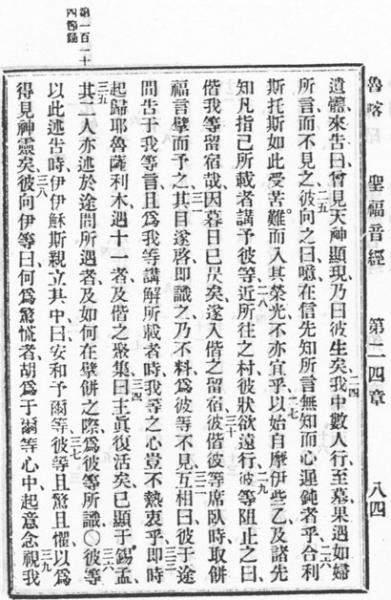 魯喀 聖福音經 第二四章 八四
遺體、來告曰曾見天神顯現乃曰彼生矣我中數人行至墓果遇如婦
所言而不見之彼向之曰噫在信先知所言無知而心遲鈍者乎合利
斯托斯如此受苦難而入其榮光不亦宜乎以始自摩伊些乙及諸先
知凡指己所載者講予彼等近所往之村彼狀欲遠行彼等阻止之曰
偕我等留宿哉因暮日已昃矣遂入偕之留宿彼偕彼等席臥時取餅
福言擘而予之其目遂啓即識之乃不料爲彼等不見互相曰彼于途
間告于我等言且爲我等講解所載者時我等之心豈不熱衷乎即時
起歸耶魯薩利木遇十一者及偕之聚集曰主眞復活矣已顯于錫孟
其二人亦述於途間所遇者及如何在擘餅之際爲彼等所識〇彼等
以此述告時伊伊穌斯親立其中曰安和予爾等彼等且驚且懼以爲
得見神靈矣彼向伊等曰何爲驚慌者胡爲于爾等心中起意念視我
第一百一十